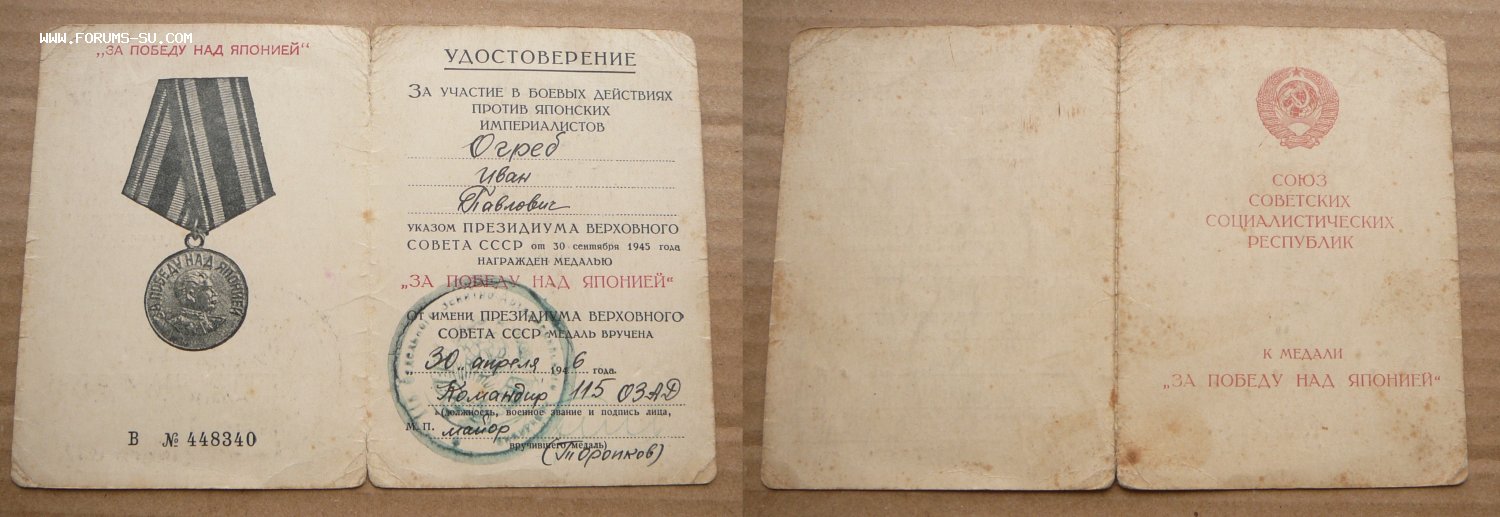 www.forums-su.com
„ЗА ПОБЕДУ НАД ЯПОНИЕЙ“
ЗА ПОБЕДУ НАД ЯПОНИЕЙ
В № 448340
УДОСТОВЕРЕНИЕ
ЗА УЧАСТИЕ В БОЕВЫХ ДЕЙСТВИЯХ
ПРОТИВ ЯПОНСКИХ
ИМПЕРИАЛИСТОВ
Огреб
Иван
Павлович
УКАЗОМ ПРЕЗИДИУМА ВЕРХОВНОГО
СОВЕТА СССР от 30 сентября 1945 года
НАГРАЖДЕН МЕДАЛЬЮ
„ЗА ПОБЕДУ НАД ЯПОНИЕЙ“
ОТ ИМЕНИ ПРЕЗИДИУМА ВЕРХОВНОГО
СОВЕТА СССР МЕДАЛЬ ВРУЧЕНА
„30„ апреля 1946 года.
Командир 115 ОЗАД
(должность, военное звание и подпись лица,
М. П. майор
вручившего медаль)
СОЮЗ
СОВЕТСКИХ
СОЦИАЛИСТИЧЕСКИХ
РЕСПУБЛИК
К МЕДАЛИ
„ЗА ПОБЕДУ НАД ЯПОНИЕЙ“